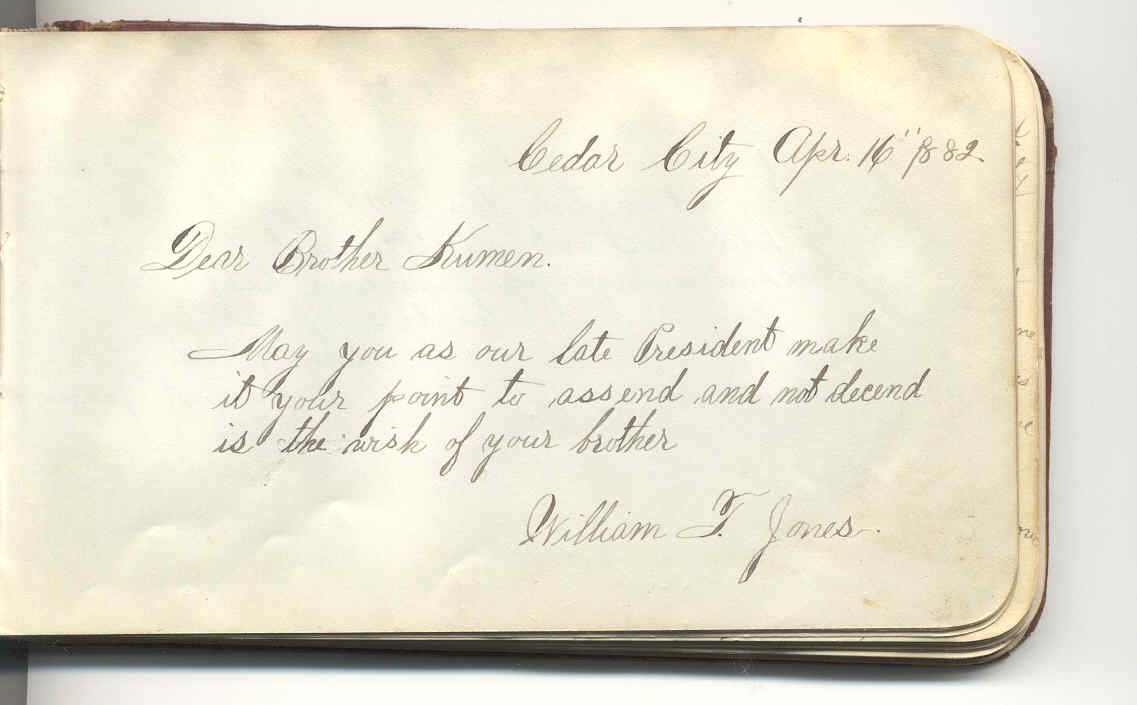 Cedar City Apr. 16" 1882
Dear Brother Kumen.
May you as our late President make
it your point to assend and not decend
is the wish of your brother
William T. Jones.